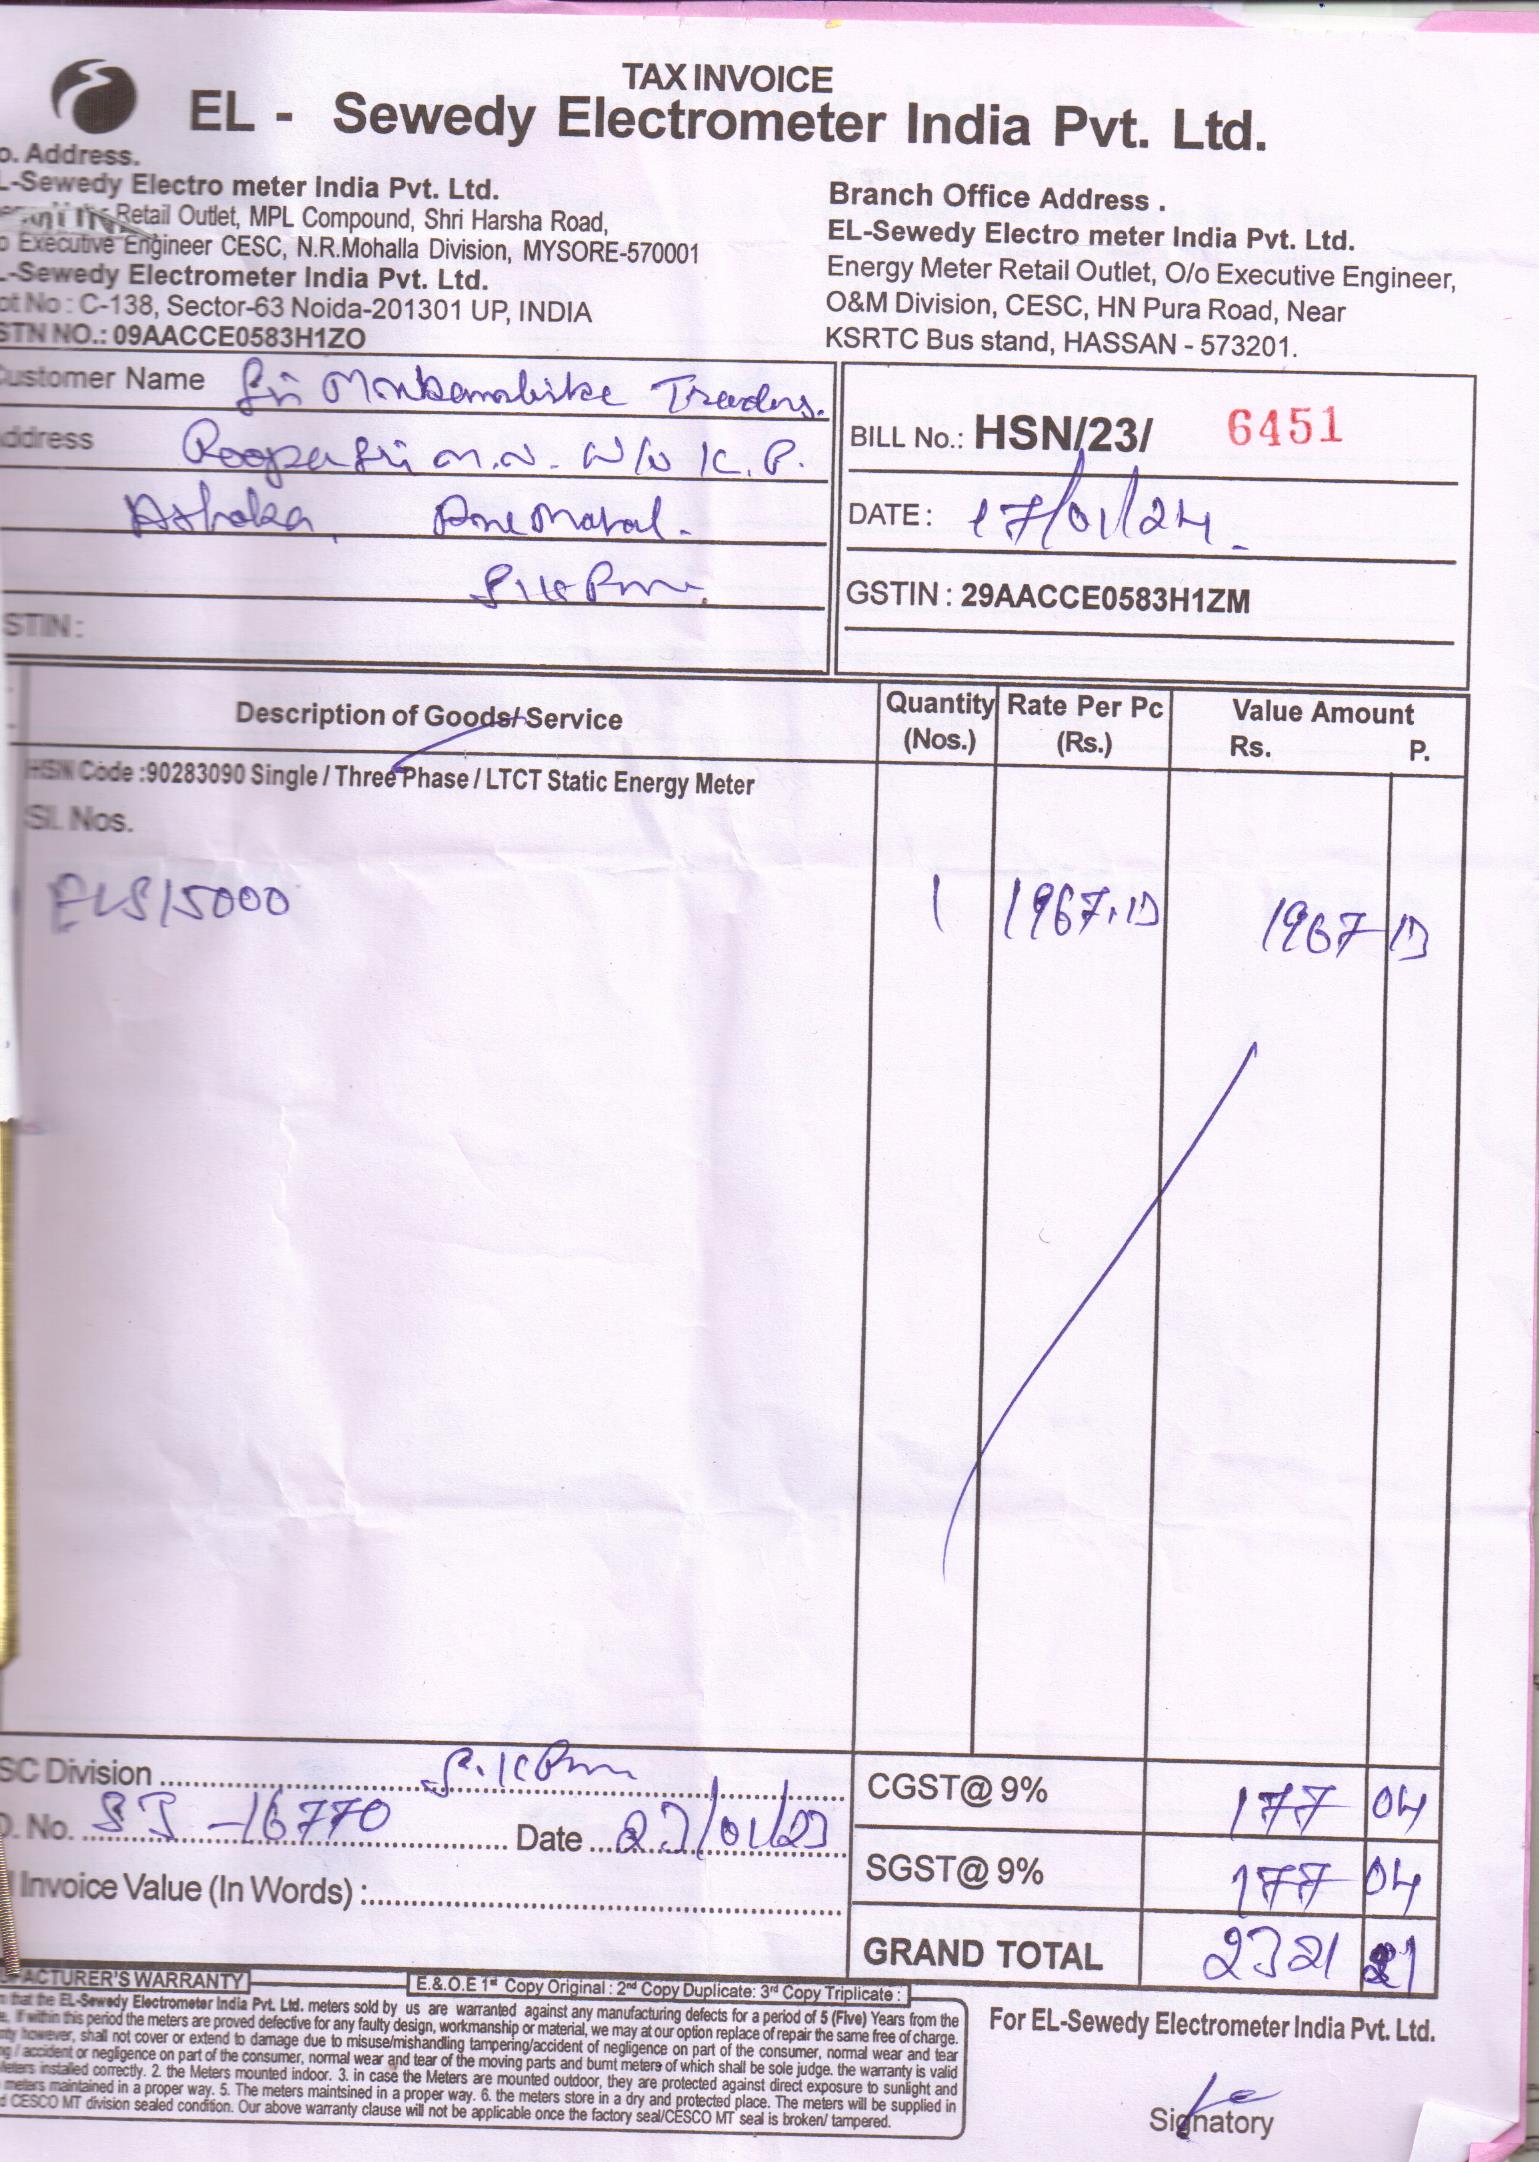 TAX INVOICE
EL - Sewedy Electrometer India Pvt. Ltd.
o. Address.
L-Sewedy Electro meter India Pvt. Ltd.
Retail Outlet, MPL Compound, Shri Harsha Road,
o Executive Engineer CESC, N.R.Mohalla Division, MYSORE-570001
L-Sewedy Electrometer India Pvt. Ltd.
ot No : C-138, Sector-63 Noida-201301 UP, INDIA
STN NO.: 09AACCE0583H1ZO
Branch Office Address .
EL-Sewedy Electro meter India Pvt. Ltd.
Energy Meter Retail Outlet, O/o Executive Engineer,
O&M Division, CESC, HN Pura Road, Near
KSRTC Bus stand, HASSAN - 573201.
ustomer Name Sri Traders.
ddress Roopa Sri M.N. W/o K.P.
Ashoka,
STIN :
BILL No.: HSN/23/ 6451
DATE : 17/01/24
GSTIN : 29AACCE0583H1ZM
Description of Goods/ Service Quantity (Nos.) Rate Per Pc (Rs.) Value Amount Rs. P.
HSN Code :90283090 Single / Three Phase / LTCT Static Energy Meter
Sl. Nos.
ELS15000 1 1967.10 1967 10
SC Division
O. No. SJ -16770 Date 23/01/23
Invoice Value (In Words) :
CGST@ 9% 177 04
SGST@ 9% 177 04
GRAND TOTAL 2321 21
ACTURER'S WARRANTY
E.& O.E 1st Copy Original : 2nd Copy Duplicate: 3rd Copy Triplicate :
that the EL-Sewedy Electrometer India Pvt. Ltd. meters sold by us are warranted against any manufacturing defects for a period of 5 (Five) Years from the
if within this period the meters are proved defective for any faulty design, workmanship or material, we may at our option replace of repair the same free of charge.
nty however, shall not cover or extend to damage due to misuse/mishandling tampering/accident of negligence on part of the consumer, normal wear and tear
ng / accident or negligence on part of the consumer, normal wear and tear of the moving parts and burnt meters of which shall be sole judge. the warranty is valid
Meters installed correctly. 2. the Meters mounted indoor. 3. in case the Meters are mounted outdoor, they are protected against direct exposure to sunlight and
meters maintained in a proper way. 5. The meters maintsined in a proper way. 6. the meters store in a dry and protected place. The meters will be supplied in
d CESCO MT division sealed condition. Our above warranty clause will not be applicable once the factory seal/CESCO MT seal is broken/ tampered.
For EL-Sewedy Electrometer India Pvt. Ltd.
Signatory